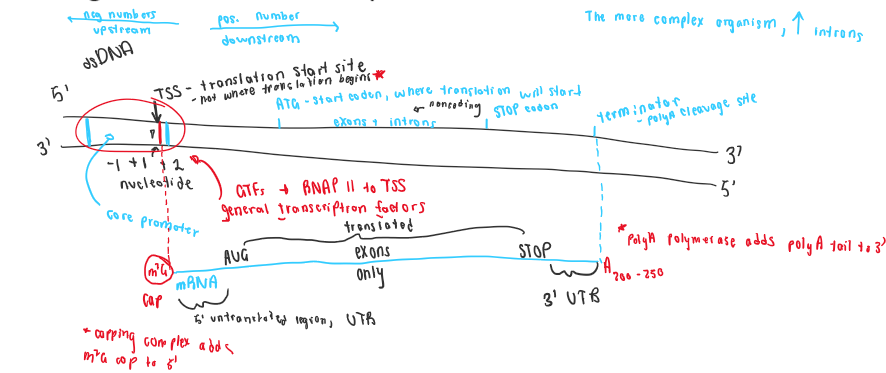 neg numbers
upstream
pos. number
downstream
The more complex organism, ↑ introns
dsDNA
TSS - translation start site
- not where translation begins *
5'
ATG - start codon, where translation will start
noncoding
STOP codon
exons + introns
terminator
- polyA cleavage site
3'
3'
5'
-1 +1 +2
nucleotide
GTFs → RNAP II to TSS
general transcription factors
core promoter
translated
AUG
exons
only
STOP
* PolyA polymerase adds polyA tail to 3'
m⁷G
cap
mRNA
A 200-250
3' UTR
5' untranslated region, UTR
* capping complex adds
m⁷G cap to 5'